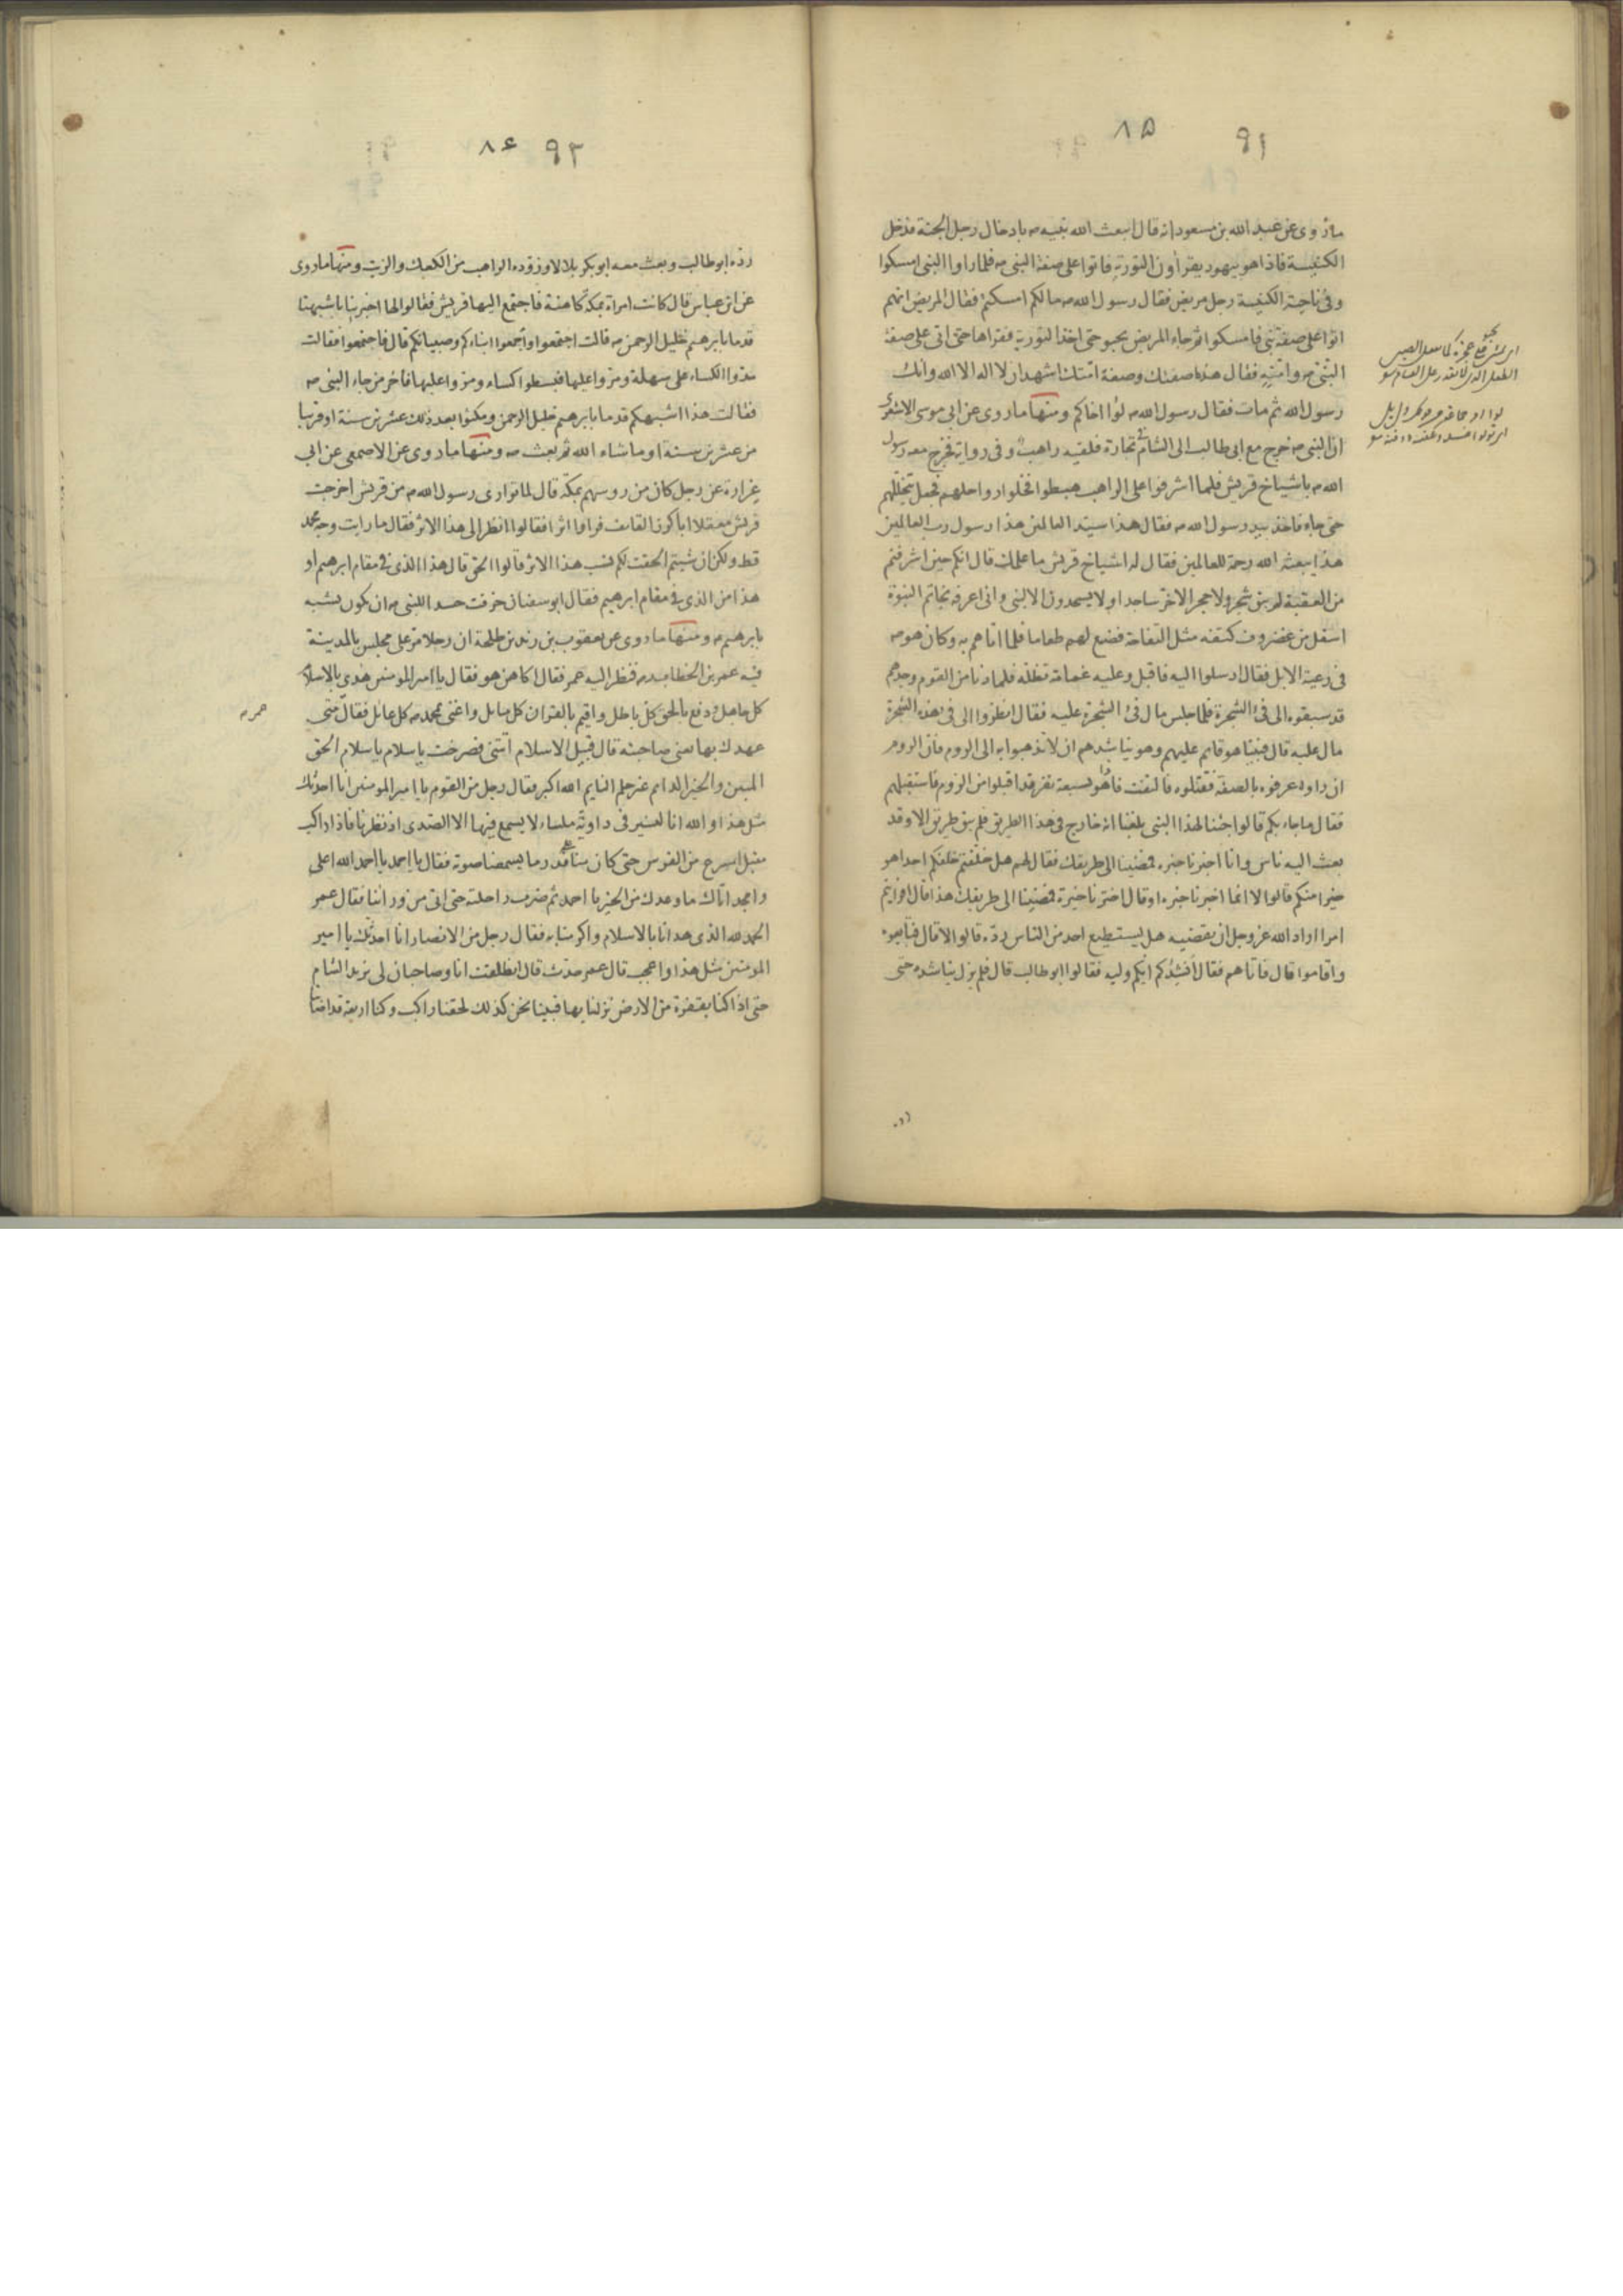 ٩١ ٨٥
ما روى عن عبد الله بن مسعود انه قال ابتعث الله نبيه ص بادخال رجل الجنة فدخل
الكنيسة فاذا هو بيهود يقرأون التورية فاتوا على صفة النبي ص فلما راوا النبي امسكوا
وفي ناحية الكنيسة رجل مريض فقال رسول الله ص مالكم امسكتم فقال المريض انهم
اتوا على صفة نبي فامسكوا ثم جاء المريض يحبو حتى اخذ التورية فقراها حتى اتى على صفة
النبي ص وامته فقال هذه صفتك وصفة امتك اشهد ان لا اله الا الله وانك
رسول الله ثم مات فقال رسول الله ص لوا اخاكم ومنها ما روى عن ابي موسى الاشعري
ان النبي ص خرج مع ابي طالب الى الشام في تجارة فلقيه راهب وفي رواية فخرج معه رسول
الله ص باشياخ قريش فلما اشرفوا على الراهب هبطوا فحلوا رواحلهم فجعل يتخللهم
حتى جاء فاخذ بيد رسول الله ص فقال هذا سيد العالمين هذا رسول رب العالمين
هذا يبعثه الله رحمة للعالمين فقال له اشياخ قريش ما علمك قال انكم حين اشرفتم
من العقبة لم يبق شجر ولا حجر الا خر ساجدا ولا يسجدون الا لنبي واني اعرفه بخاتم النبوة
اسفل من غضروف كتفه مثل التفاحة فصنع لهم طعاما فلما اتاهم به وكان هو ص
في رعية الابل فقال ارسلوا اليه فاقبل وعليه غمامة تظله فلما دنا من القوم وجدهم
قد سبقوه الى فئ الشجرة فلما جلس مال فئ الشجرة عليه فقال انظروا الى فئ هذه الشجرة
مال عليه قال فبينا هو قايم عليهم وهو يناشدهم ان لا تذهبوا به الى الروم فان الروم
ان راوه عرفوه بالصفة فقتلوه فالتفت فاذا هو بسبعة نفر قد اقبلوا من الروم فاستقبلهم
فقال ما جاء بكم قالوا جئنا لهذا النبي بلغنا انه خارج في هذا الطريق فلم يبق طريق الا وقد
بعث اليه ناس وانا اخبرنا خبره فبعثنا الى طريقك فقال لهم هل خلفتم خلفكم احدا هو
خيرا منكم قالوا لا انما اخبرنا خبره او قال اخترنا خيرة الى طريقك هذا قال افرايتم
امرا اراد الله عز وجل ان يقضيه هل يستطيع احد من الناس رده قالوا لا قال فتابعوه
واقاموا قال فاتاهم فقال انشدكم ايكم وليه فقالوا ابو طالب قال فلم يزل يناشده حتى
٩٢ ٨٤
رده ابو طالب وبعث معه ابو بكر بلالا وزوده الراهب من الكعك والزيت ومنها ما روى
عن ابن عباس قال كانت امراة بمكة كاهنة فاجتمع اليها قريش فقالوا لها اخبرينا باشبهنا
قدما بابرهيم خليل الرحمن ص قالت اجتمعوا واجمعوا ابناءكم وصبيانكم قال فاجتمعوا فقالت
مدوا الكساء على سهلة ومروا عليها فبسطوا كساء ومروا عليها فاخر من جاء النبي ص
فقالت هذا اشبهكم قدما بابرهيم خليل الرحمن ومكثوا بعد ذلك عشرين سنة او قريبا
من عشرين سنة او ما شاء الله ثم بعث ص ومنها ما روى عن الاصمعي عن ابي
عن رجل كان من روسهم بمكة قال لما توارى رسول الله ص من قريش اخرجت
قريش معقلا ابا كرز القائف فراوا اثرا فقالوا انظر الى هذا الاثر فقال ما رايت وجه محمد
قط ولكن ان شيتم الحقت لكم نسب هذا الاثر قالوا الحق قال هذا الذي في مقام ابرهيم او
هذا من الذي في مقام ابرهيم فقال ابو سفيان خرفت حسدا للنبي ص ان يكون يشبه
بابرهيم ص ومنها ما روى عن يعقوب بن زيد بن طلحة ان رجلا مر على مجلس بالمدينة
فيه عمر بن الخطاب فنظر اليه عمر فقال اكاهن هو فقال يا امير المومنين هدى بالاسلام
كل جاهل ودفع بالحق كل باطل واقيم بالقران كل مايل واغنى بمحمد ص كل عايل فقال متى
عهدك بها يعني صاحبته قال قبيل الاسلام اتتني فصرخت يا سلام يا سلام الحق
المبين والخير الدايم غير حلم النايم الله اكبر فقال رجل من القوم يا امير المومنين انا احدثك
مثل هذا والله انا لنسير في داوية ملساء لا يسمع فيها الا الصدى اذ نظرنا فاذا راكب
مقبل اسرع من الفرس حتى كان منا على قدر ما يسمعنا صوته فقال يا احمد يا احمد الله اعلى
وامجد اتاك ما وعدك من الخير يا احمد ثم ضرب راحلته حتى اتى من ورائنا فقال عمر
الحمد لله الذي هدانا بالاسلام واكرمنا به فقال رجل من الانصار انا احدثك يا امير
المومنين مثل هذا واعجب قال عمر حدث قال انطلقت انا وصاحبان لي نريد الشام
حتى اذا كنا بقفرة من الارض نزلنا بها فبينا نحن كذلك لحقنا راكب وكنا اربعة قد اصابنا